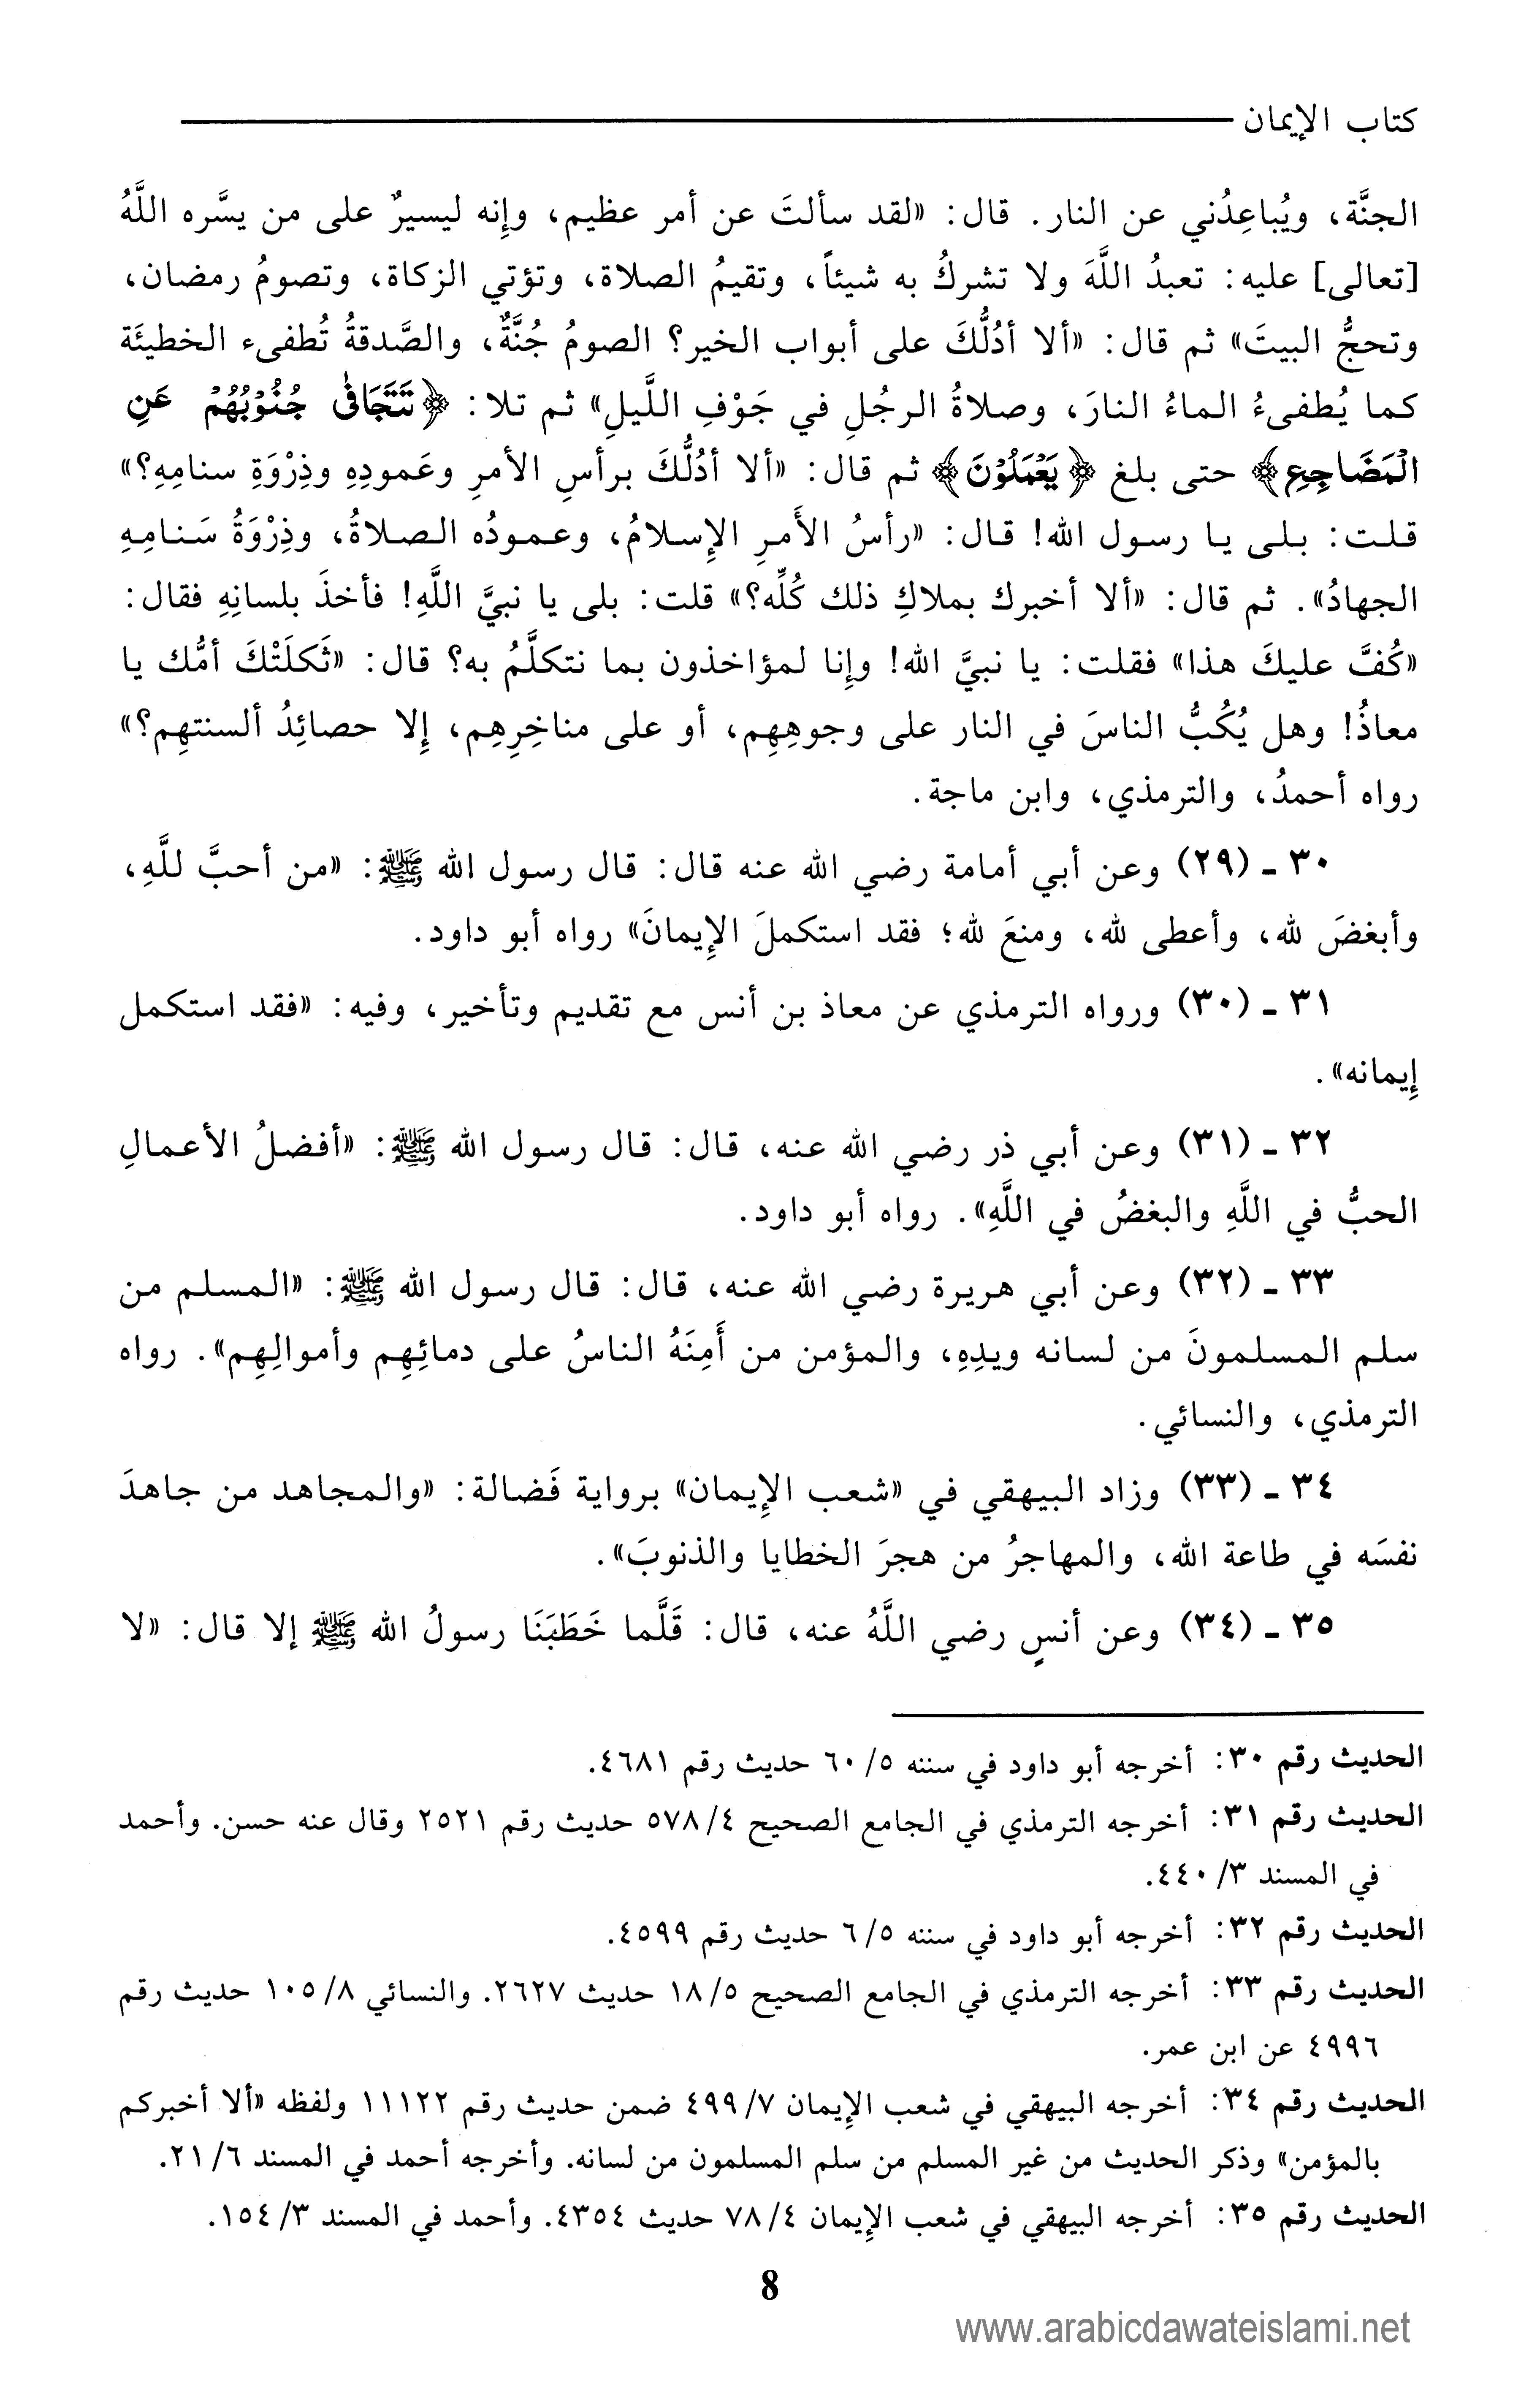 كتاب الإيمان
الجنَّة، ويُباعِدُني عن النار. قال: «لقد سألتَ عن أمر عظيم، وإِنه ليسيرٌ على من يسَّره اللَّهُ
[تعالى] عليه: تعبدُ اللَّهَ ولا تشركُ به شيئاً، وتقيمُ الصلاة، وتؤتي الزكاة، وتصومُ رمضان،
وتحجُّ البيتَ» ثم قال: «ألا أدُلُّكَ على أبواب الخير؟ الصومُ جُنَّةٌ، والصَّدقةُ تُطفىء الخطيئَة
كما يُطفىءُ الماءُ النارَ، وصلاةُ الرجُلِ في جَوْفِ اللَّيلِ» ثم تلا: ﴿تَتَجَافٰى جُنُوْبُهُمْ عَنِ
الْمَضَاجِعِ﴾ حتى بلغ ﴿يَعْمَلُوْنَ﴾ ثم قال: «ألا أدُلُّكَ برأسِ الأمرِ وعَمودِهِ وذِرْوَةِ سنامِهِ؟»
قلت: بلى يا رسول الله! قال: «رأسُ الأَمرِ الإِسلامُ، وعمودُه الصلاةُ، وذِرْوَةُ سَنامِهِ
الجهادُ». ثم قال: «ألا أخبرك بملاكِ ذلك كُلِّه؟» قلت: بلى يا نبيَّ اللَّهِ! فأخذَ بلسانِهِ فقال:
«كُفَّ عليكَ هذا» فقلت: يا نبيَّ الله! وإِنا لمؤاخذون بما نتكلَّمُ به؟ قال: «ثَكلَتْكَ أمُّك يا
معاذُ! وهل يُكُبُّ الناسَ في النار على وجوهِهِم، أو على مناخِرِهِم، إِلا حصائِدُ ألسنتهِم؟»
رواه أحمدُ، والترمذي، وابن ماجة.
٣٠ ـ (٢٩) وعن أبي أمامة رضي الله عنه قال: قال رسول الله ﷺ: «من أحبَّ للَّهِ،
وأبغضَ لله، وأعطى لله، ومنعَ لله؛ فقد استكملَ الإِيمانَ» رواه أبو داود.
٣١ ـ (٣٠) ورواه الترمذي عن معاذ بن أنس مع تقديم وتأخير، وفيه: «فقد استكمل
إِيمانه».
٣٢ ـ (٣١) وعن أبي ذر رضي الله عنه، قال: قال رسول الله ﷺ: «أفضلُ الأعمالِ
الحبُّ في اللَّهِ والبغضُ في اللَّهِ». رواه أبو داود.
٣٣ ـ (٣٢) وعن أبي هريرة رضي الله عنه، قال: قال رسول الله ﷺ: «المسلم من
سلم المسلمونَ من لسانه ويدِهِ، والمؤمن من أَمِنَهُ الناسُ على دمائِهِم وأموالِهِم». رواه
الترمذي، والنسائي.
٣٤ ـ (٣٣) وزاد البيهقي في «شعب الإِيمان» برواية فَضالة: «والمجاهد من جاهدَ
نفسَه في طاعة الله، والمهاجرُ من هجرَ الخطايا والذنوبَ».
٣٥ ـ (٣٤) وعن أنسٍ رضي اللَّهُ عنه، قال: قَلَّما خَطَبَنَا رسولُ الله ﷺ إلا قال: «لا
الحديث رقم ٣٠: أخرجه أبو داود في سننه ٥/ ٦٠ حديث رقم ٤٦٨١.
الحديث رقم ٣١: أخرجه الترمذي في الجامع الصحيح ٤/ ٥٧٨ حديث رقم ٢٥٢١ وقال عنه حسن. وأحمد
في المسند ٣/ ٤٤٠.
الحديث رقم ٣٢: أخرجه أبو داود في سننه ٥/ ٦ حديث رقم ٤٥٩٩.
الحديث رقم ٣٣: أخرجه الترمذي في الجامع الصحيح ٥/ ١٨ حديث ٢٦٢٧. والنسائي ٨/ ١٠٥ حديث رقم
٤٩٩٦ عن ابن عمر.
الحديث رقم ٣٤: أخرجه البيهقي في شعب الإِيمان ٧/ ٤٩٩ ضمن حديث رقم ١١١٢٢ ولفظه «ألا أخبركم
بالمؤمن» وذكر الحديث من غير المسلم من سلم المسلمون من لسانه. وأخرجه أحمد في المسند ٦/ ٢١.
الحديث رقم ٣٥: أخرجه البيهقي في شعب الإِيمان ٤/ ٧٨ حديث ٤٣٥٤. وأحمد في المسند ٣/ ١٥٤.
8
www.arabicdawateislami.net